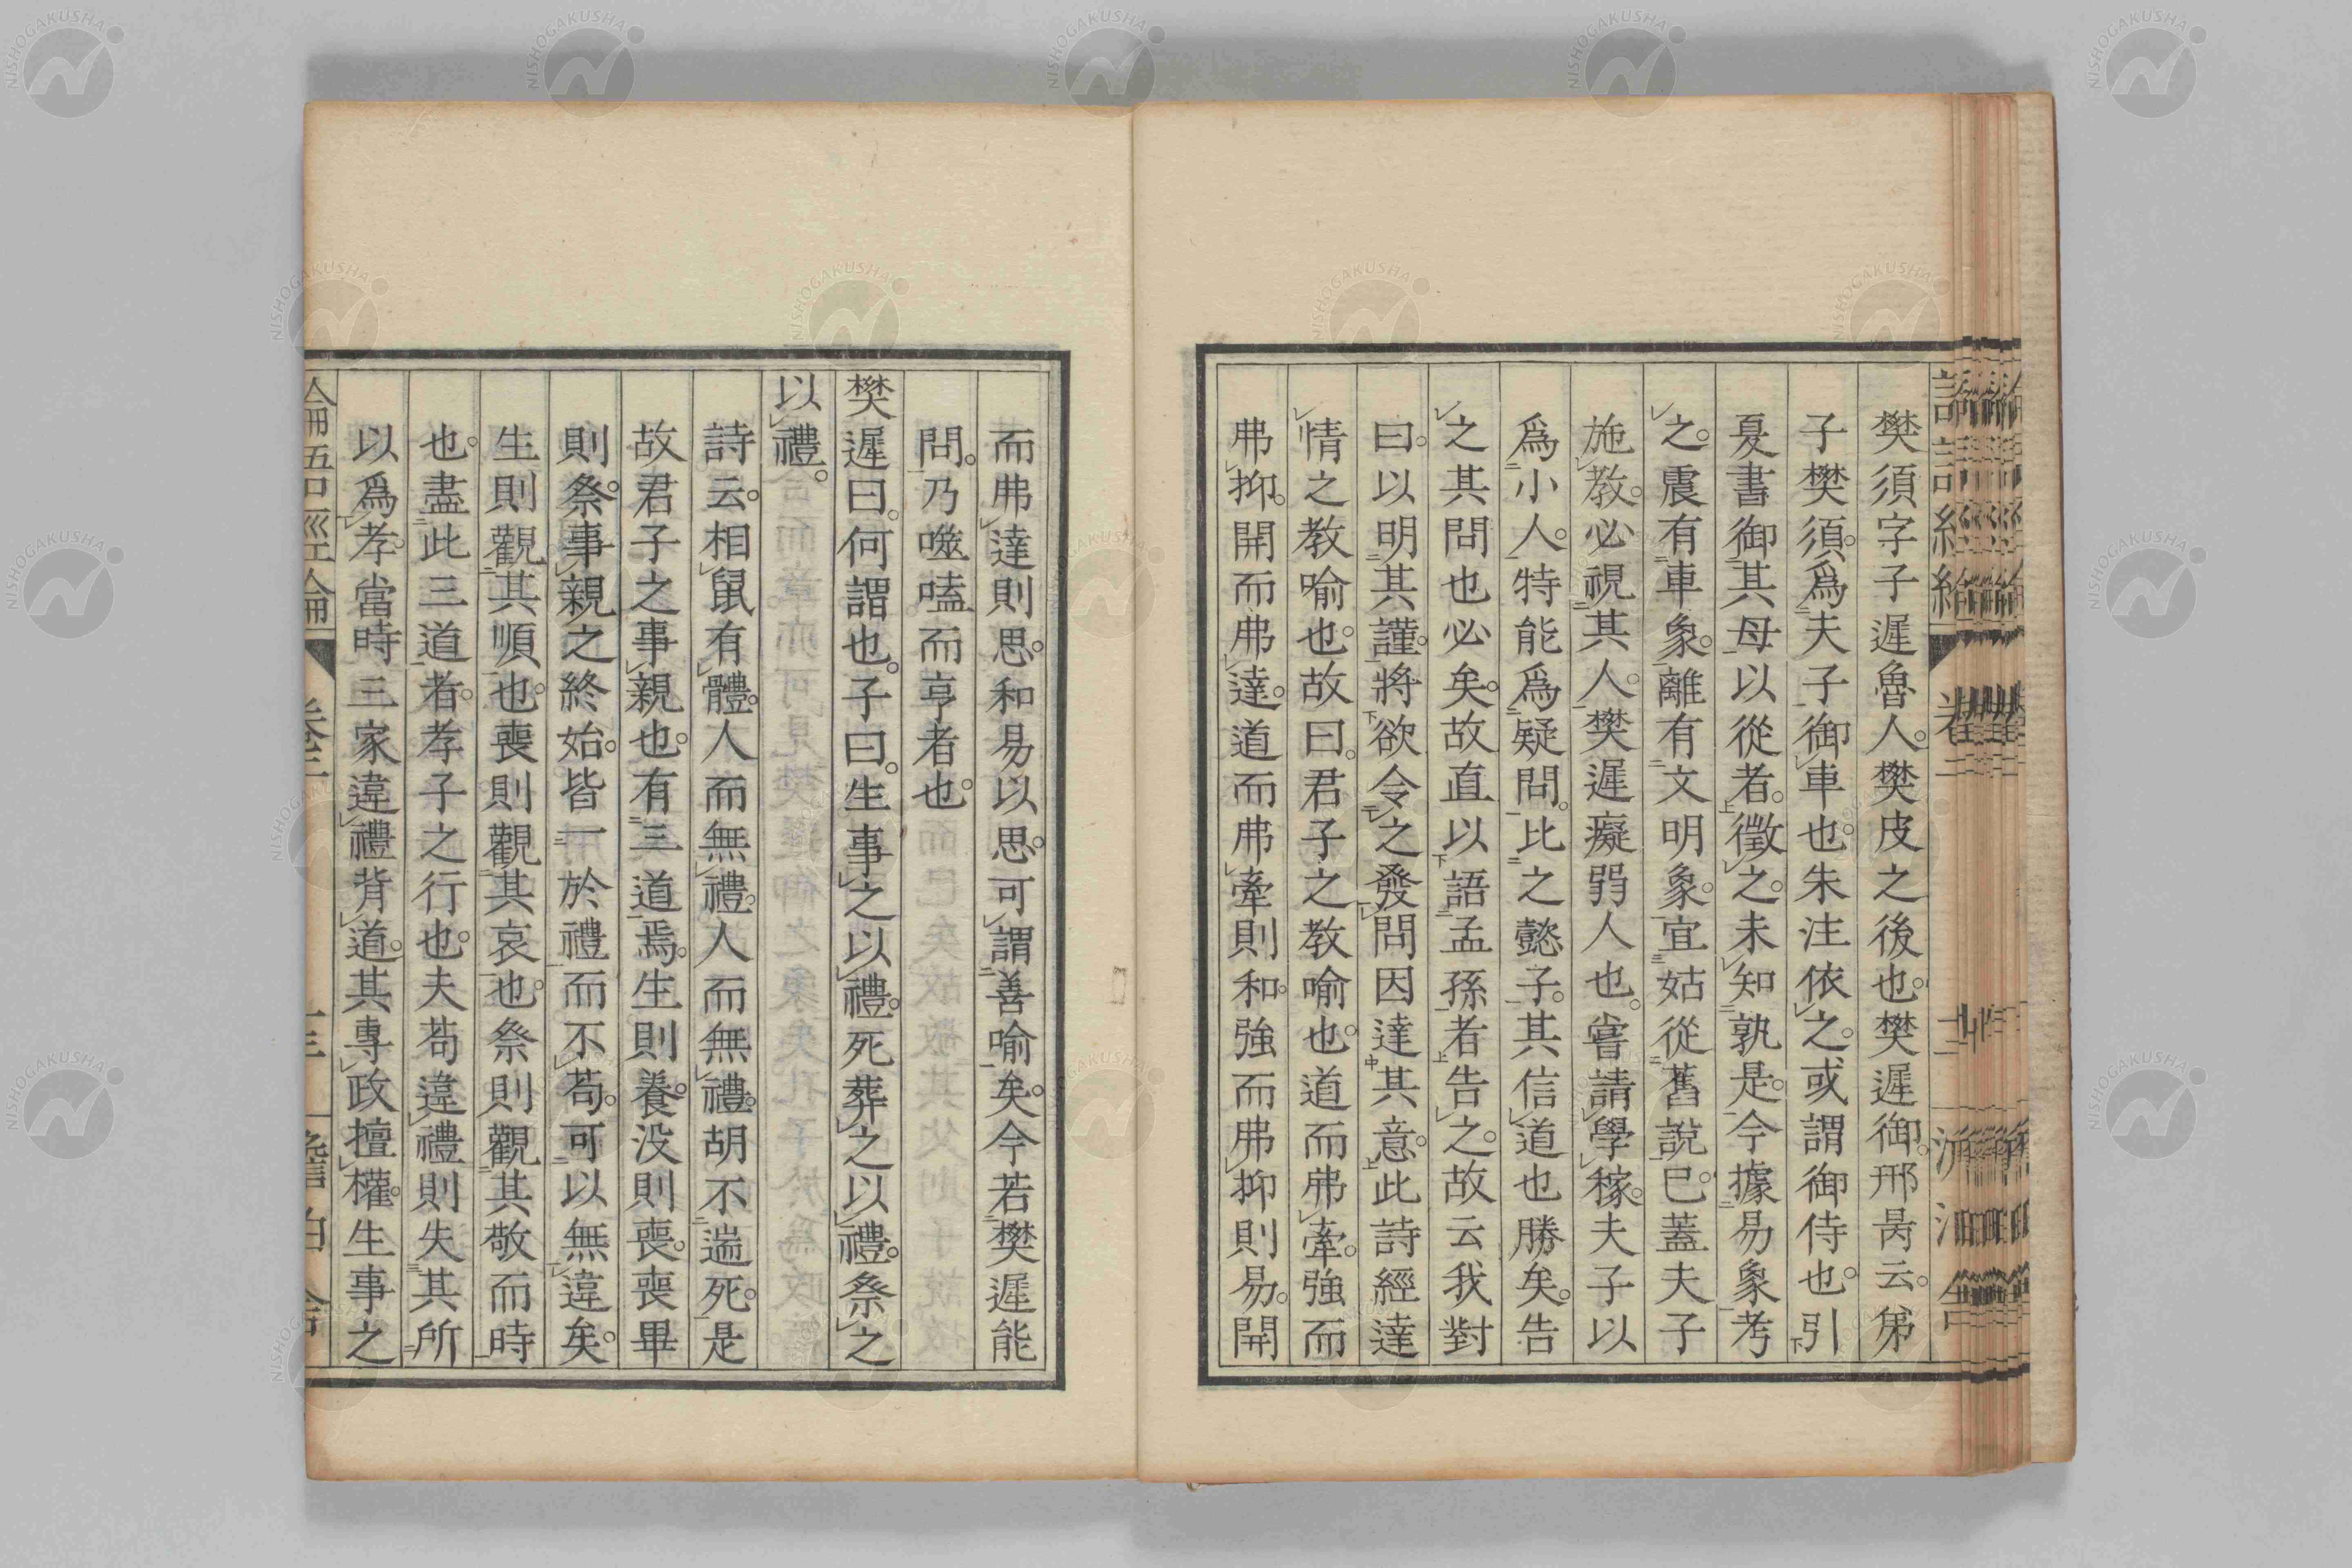 樊須字子遲魯人。樊皮之後也。樊遲御。邢昺云。弟
子樊須。爲夫子御車也。朱注依之。或謂御侍也。引
夏書御其母以從者。徵之。未知孰是。今據易象考
之。震有車象。離有文明象。宜姑從舊說已。蓋夫子
施教。必視其人。樊遲癡弱人也。嘗請學稼。夫子以
爲小人。特能爲疑問。比之懿子。其信道也勝矣。告
之其問也必矣。故直以語孟孫者告之。故云我對
曰。以明其謹。將欲令之發問因達其意。此詩經達
情之教喻也。故曰。君子之教喻也。道而弗牽。強而
弗抑。開而弗達。道而弗牽則和。強而弗抑則易。開
而弗達則思。和易以思。可謂善喻矣。今若樊遲能
問。乃噬嗑而亨者也。
樊遲曰。何謂也。子曰。生事之以禮。死葬之以禮。祭之
以禮。
詩云。相鼠有體。人而無禮。人而無禮。胡不遄死。是
故君子之事親也。有三道焉。生則養。没則喪。喪畢
則祭。事親之終始。皆一於禮而不苟。可以無違矣。
生則觀其順也。喪則觀其哀也。祭則觀其敬而時
也。盡此三道者。孝子之行也。夫苟違禮則失其所
以爲孝。當時三家違禮背道。其專政擅權。生事之
論語經綸 卷二 十三